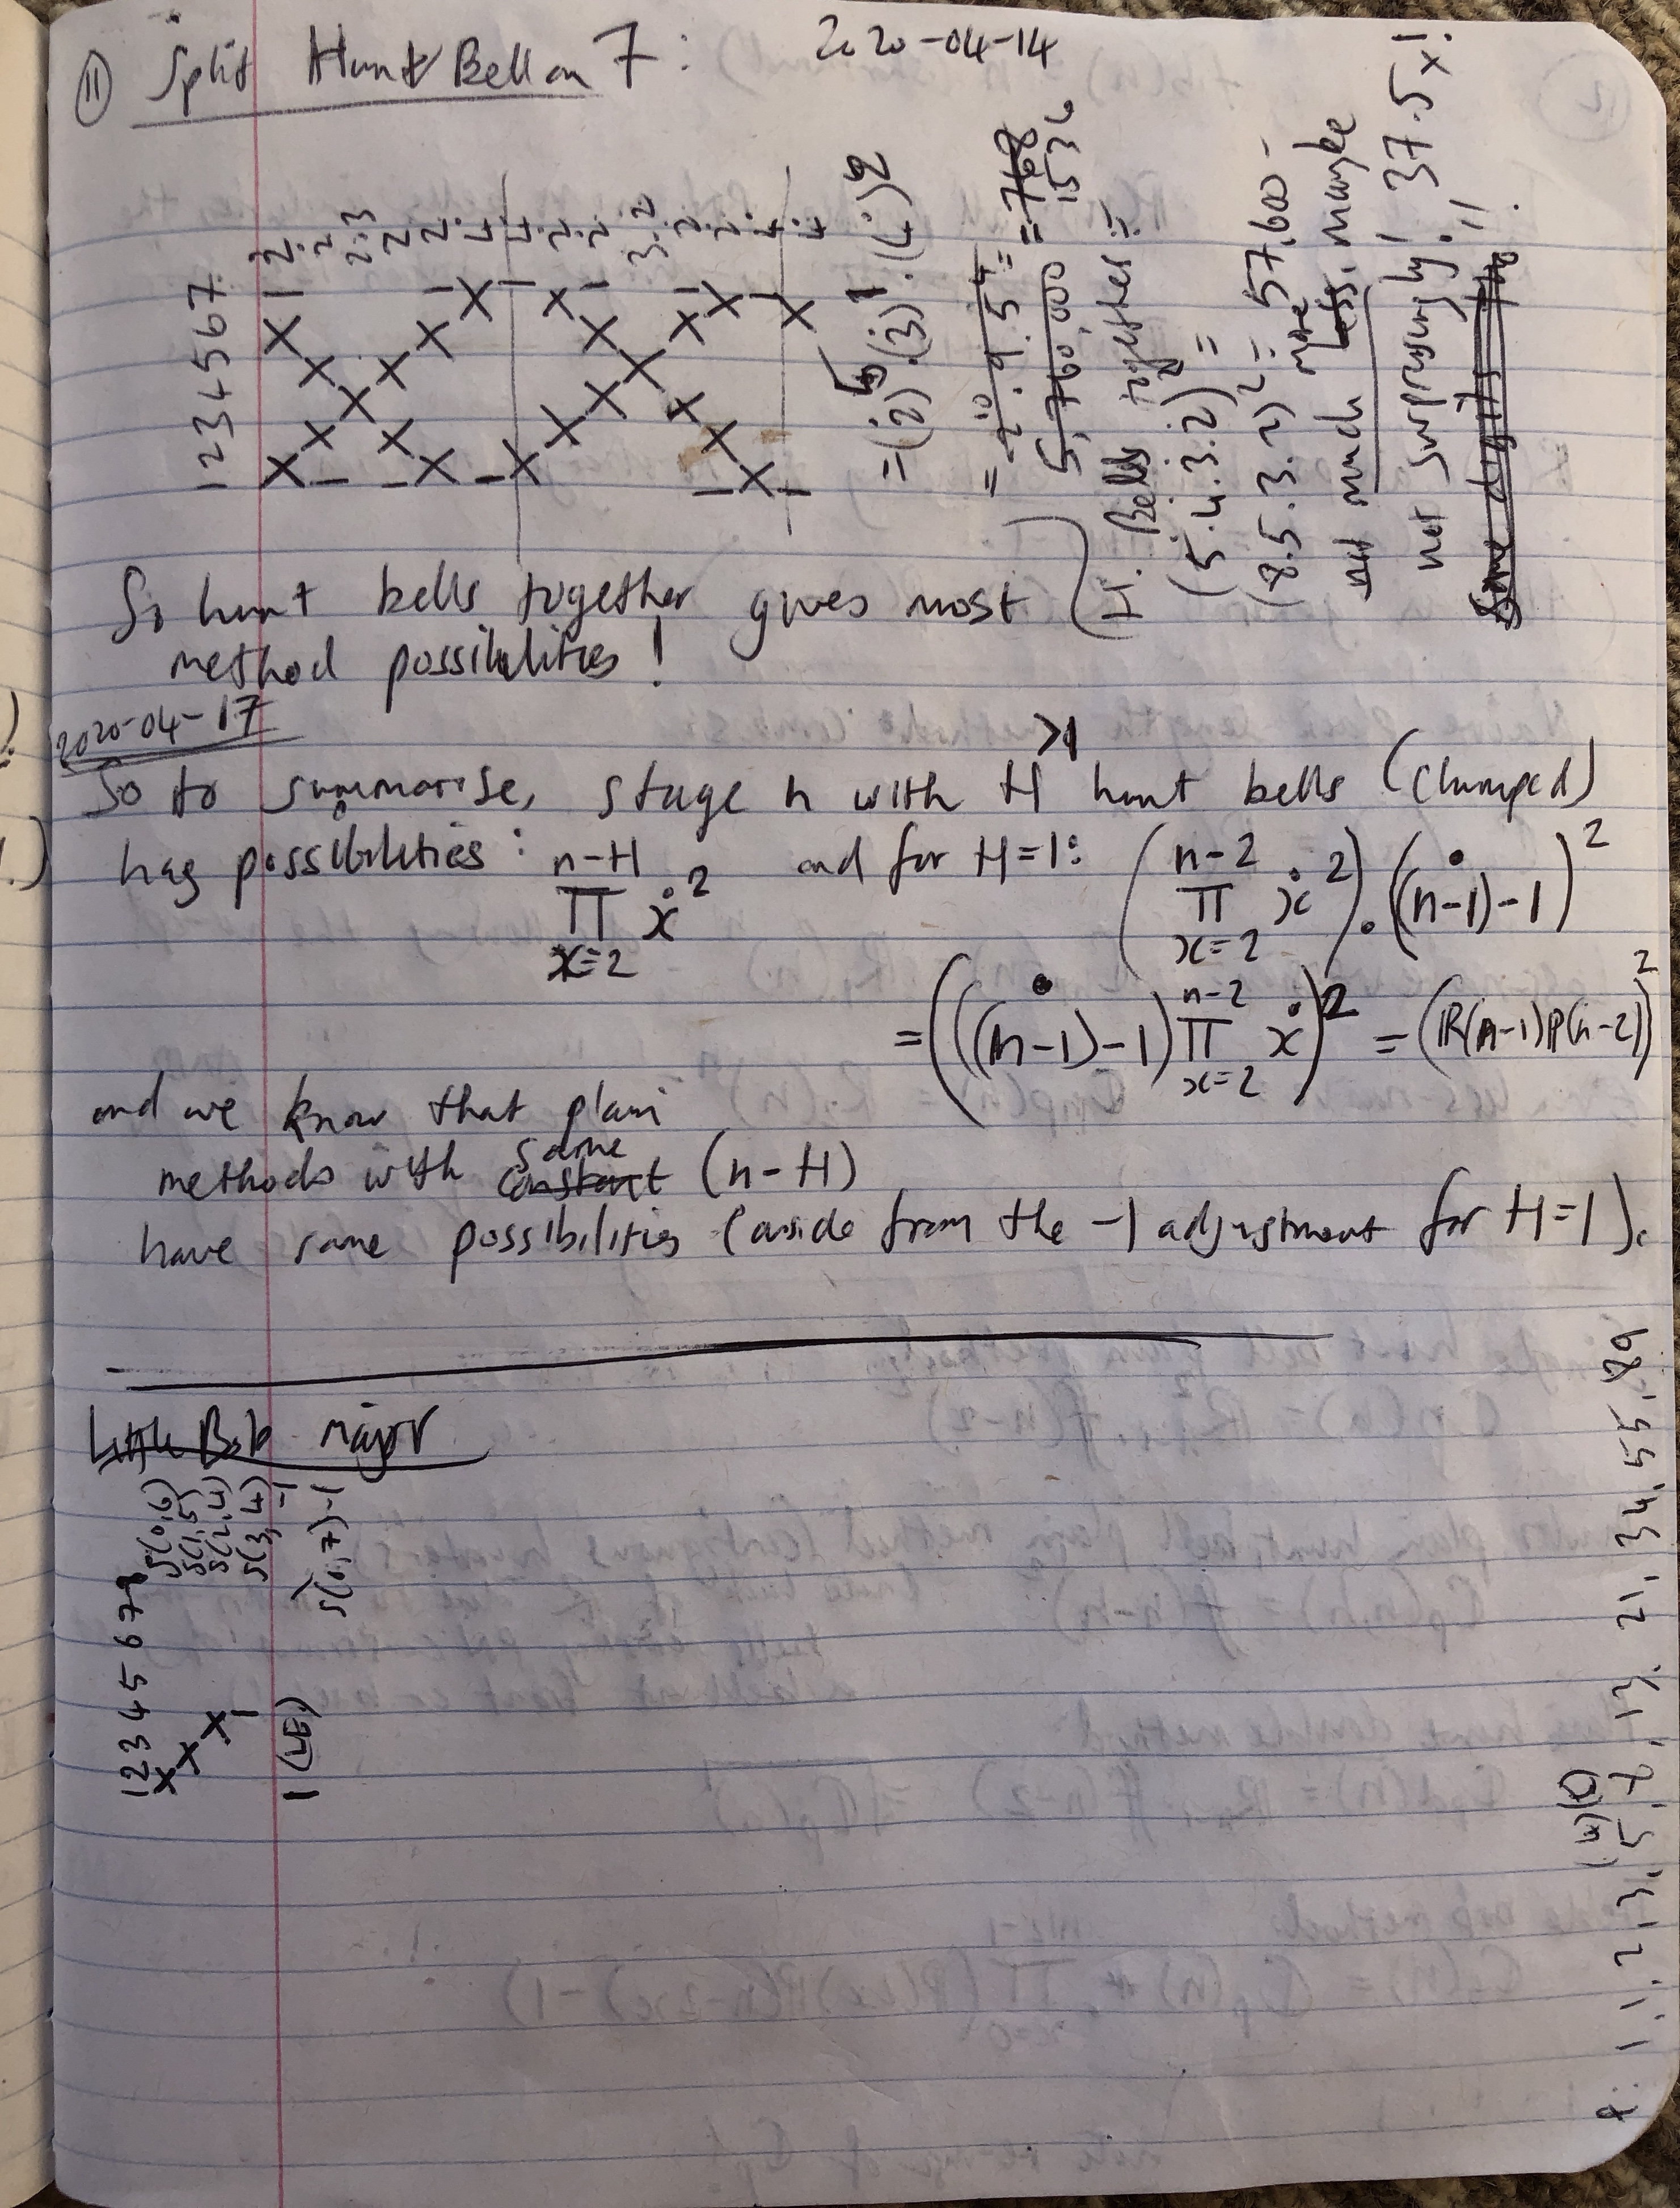 ⑪ Split Hunt Bell on 7: 2020-04-14
1234567
= (2̇)⁵.(3̇)¹.(4̇)²
= 768
1536
5,760,000
H. Bells together =
(5.4.3.2)² =
(8.5.3.2)² = 57,600 -
not much more less, maybe
not surprisingly! 37.5x!
So hunt bells together gives most
method possibilities!
2020-04-17
So to summarise, stage n with H >1 hunt bells (clumped)
has possibilities: n-H Π x=2 ẋ² and for H=1: ( n-2 Π x=2 ẋ² ) . ( (n-1)̇ -1 )²
= ( ((n-1)̇ -1) n-2 Π x=2 ẋ )² = (R(n-1)P(n-2))²
and we know that plain
methods with constant same (n-H)
have same possibilities (aside from the -1 adjustment for H=1).
Little Bob major
12345678
S(0,6)
S(1,5)
S(2,4)
S(3,4) -1
1 (LE) S(0,7)-1
1, 1, 2, 3, 5, 8, 13, 21, 34, 55, 89